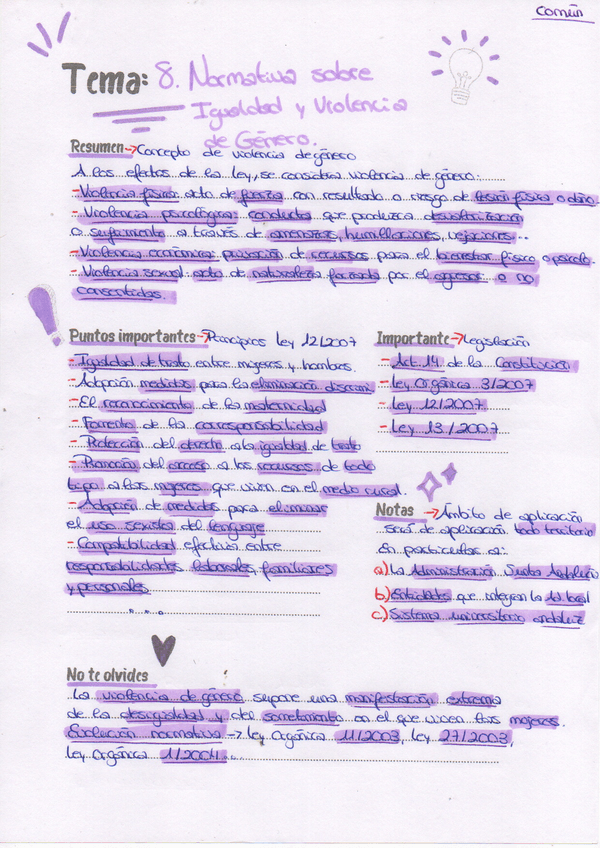 Común
Tema: 8. Normativa sobre
Igualdad y Violencia
de Género.
Resumen → Concepto de violencia de género
A los efectos de la ley, se considera violencia de género:
- Violencia física: acto de fuerza con resultado o riesgo de lesión física o daño.
- Violencia psicológica: conducta que produzca desvalorización
o sufrimiento a través de amenazas, humillaciones, vejaciones...
- Violencia económica: privación de recursos para el bienestar físico o psicolo.
- Violencia sexual: acto de naturaleza forzada por el agresor o no
consentidas.
Puntos importantes → Principios Ley 12/2007
- Igualdad de trato entre mujeres y hombres.
- Adopción medidas para la eliminación discrimi
- El reconocimiento de la maternidad
- Fomento de la corresponsabilidad
- Protección del derecho a la igualdad de trato
- Promoción del acceso a los recursos de todo
tipo a las mujeres que viven en el medio rural.
- Adopción de medidas para eliminar
el uso sexista del lenguaje
- Compatibilidad efectiva entre
responsabilidades laborales, familiares
y personales
....
Importante → Legislación
- Art. 14 de la Constitución
- Ley Orgánica 3/2007
- Ley 12/2007
- Ley 13/2007
Notas → Ámbito de aplicación
será de aplicación todo territorio
En particular a:
a) La Administración Junta Andalucía
b) Entidades que integran la Ad. local
c) Sistema universitario andaluz
No te olvides
La violencia de género supone una manifestación extrema
de la desigualdad y del sometimiento en el que viven las mujeres.
Evolución normativa → Ley Orgánica 11/2003, Ley 27/2003,
Ley Orgánica 1/2004...